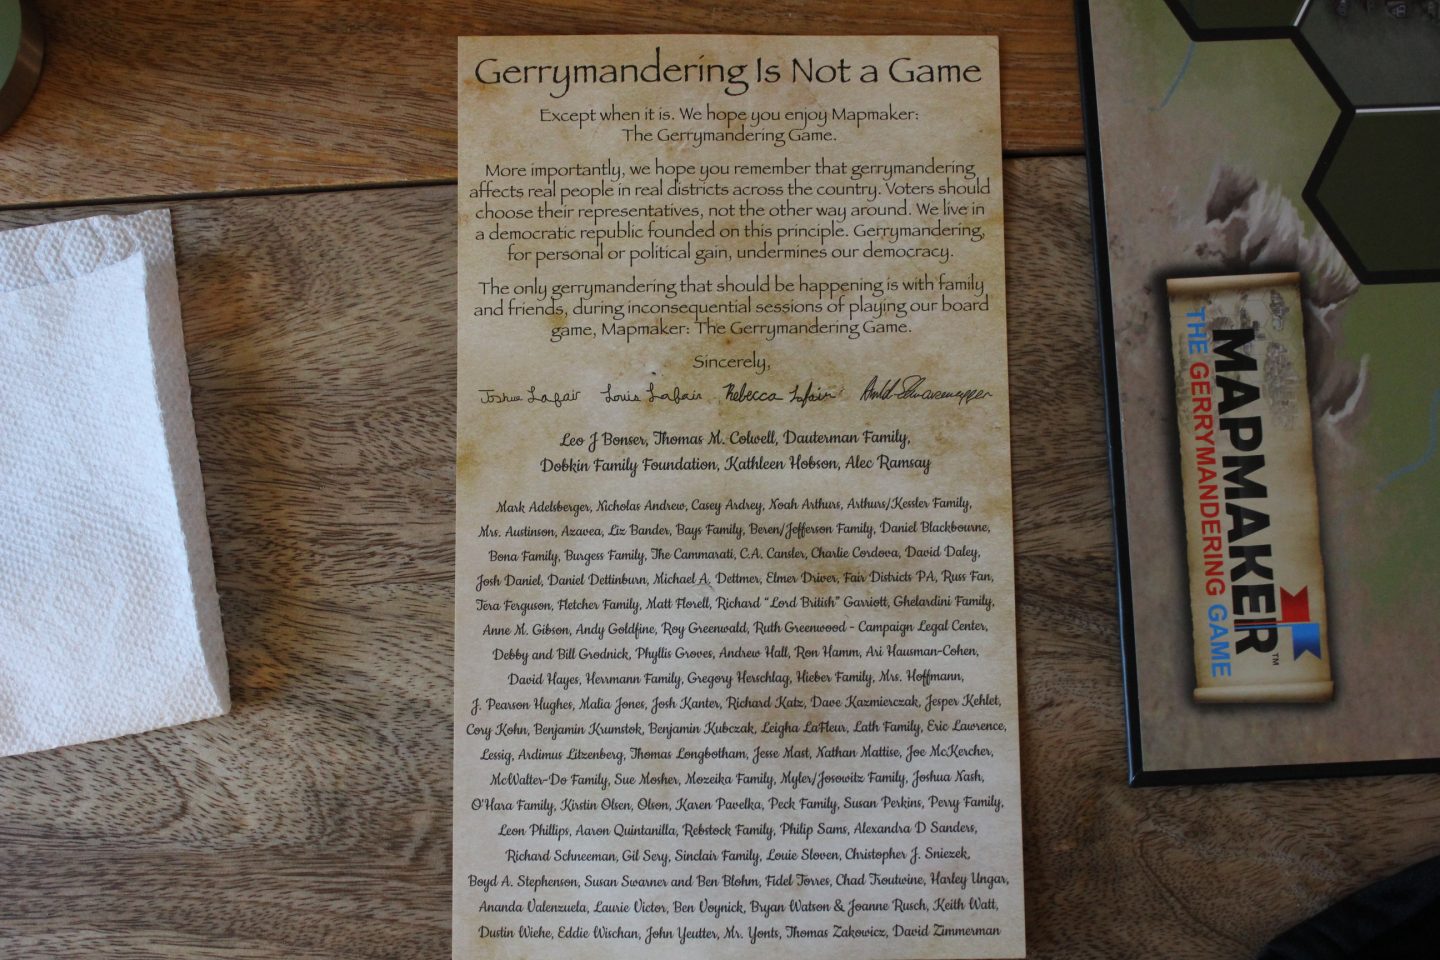 Gerrymandering Is Not a Game
Except when it is. We hope you enjoy Mapmaker:
The Gerrymandering Game.
More importantly, we hope you remember that gerrymandering
affects real people in real districts across the country. Voters should
choose their representatives, not the other way around. We live in
a democratic republic founded on this principle. Gerrymandering,
for personal or political gain, undermines our democracy.
The only gerrymandering that should be happening is with family
and friends, during inconsequential sessions of playing our board
game, Mapmaker: The Gerrymandering Game.
Sincerely,
Joshua Lafair Louis Lafair Rebecca Lafair Arnold Schwarzenegger
Leo J Bonser, Thomas M. Colwell, Dauterman Family,
Dobkin Family Foundation, Kathleen Hobson, Alec Ramsay
Mark Adelsberger, Nicholas Andrew, Casey Ardrey, Noah Arthurs, Arthurs/Kessler Family,
Mrs. Austinson, Azavea, Liz Bander, Bays Family, Beren/Jefferson Family, Daniel Blackbourne,
Bona Family, Burgess Family, The Cammarati, C.A. Cansler, Charlie Cordova, David Daley,
Josh Daniel, Daniel Dettinburn, Michael A. Dettmer, Elmer Driver, Fair Districts PA, Russ Fan,
Tera Ferguson, Fletcher Family, Matt Florell, Richard "Lord British" Garriott, Ghelardini Family,
Anne M. Gibson, Andy Goldfine, Roy Greenwald, Ruth Greenwood - Campaign Legal Center,
Debby and Bill Grodnick, Phyllis Groves, Andrew Hall, Ron Hamm, Ari Hausman-Cohen,
David Hayes, Herrmann Family, Gregory Herschlag, Hieber Family, Mrs. Hoffmann,
J. Pearson Hughes, Malia Jones, Josh Kanter, Richard Katz, Dave Kazmierczak, Jesper Kehlet,
Cory Kohn, Benjamin Krumstok, Benjamin Kubczak, Leigha LaFleur, Lath Family, Eric Lawrence,
Lessig, Ardimus Litzenberg, Thomas Longbotham, Jesse Mast, Nathan Mattise, Joe McKercher,
McWalter-Do Family, Sue Mosher, Mozeika Family, Myler/Josowitz Family, Joshua Nash,
O'Hara Family, Kirstin Olsen, Olson, Karen Pavelka, Peck Family, Susan Perkins, Perry Family,
Leon Phillips, Aaron Quintanilla, Rebstock Family, Philip Sams, Alexandra D Sanders,
Richard Schneeman, Gil Sery, Sinclair Family, Louie Sloven, Christopher J. Sniezek,
Boyd A. Stephenson, Susan Swarner and Ben Blohm, Fidel Torres, Chad Troutwine, Harley Ungar,
Ananda Valenzuela, Laurie Victor, Ben Voynick, Bryan Watson & Joanne Rusch, Keith Watt,
Dustin Wiehe, Eddie Wischan, John Yeutter, Mr. Yonts, Thomas Zakowicz, David Zimmerman
MAPMAKER™
THE GERRYMANDERING GAME